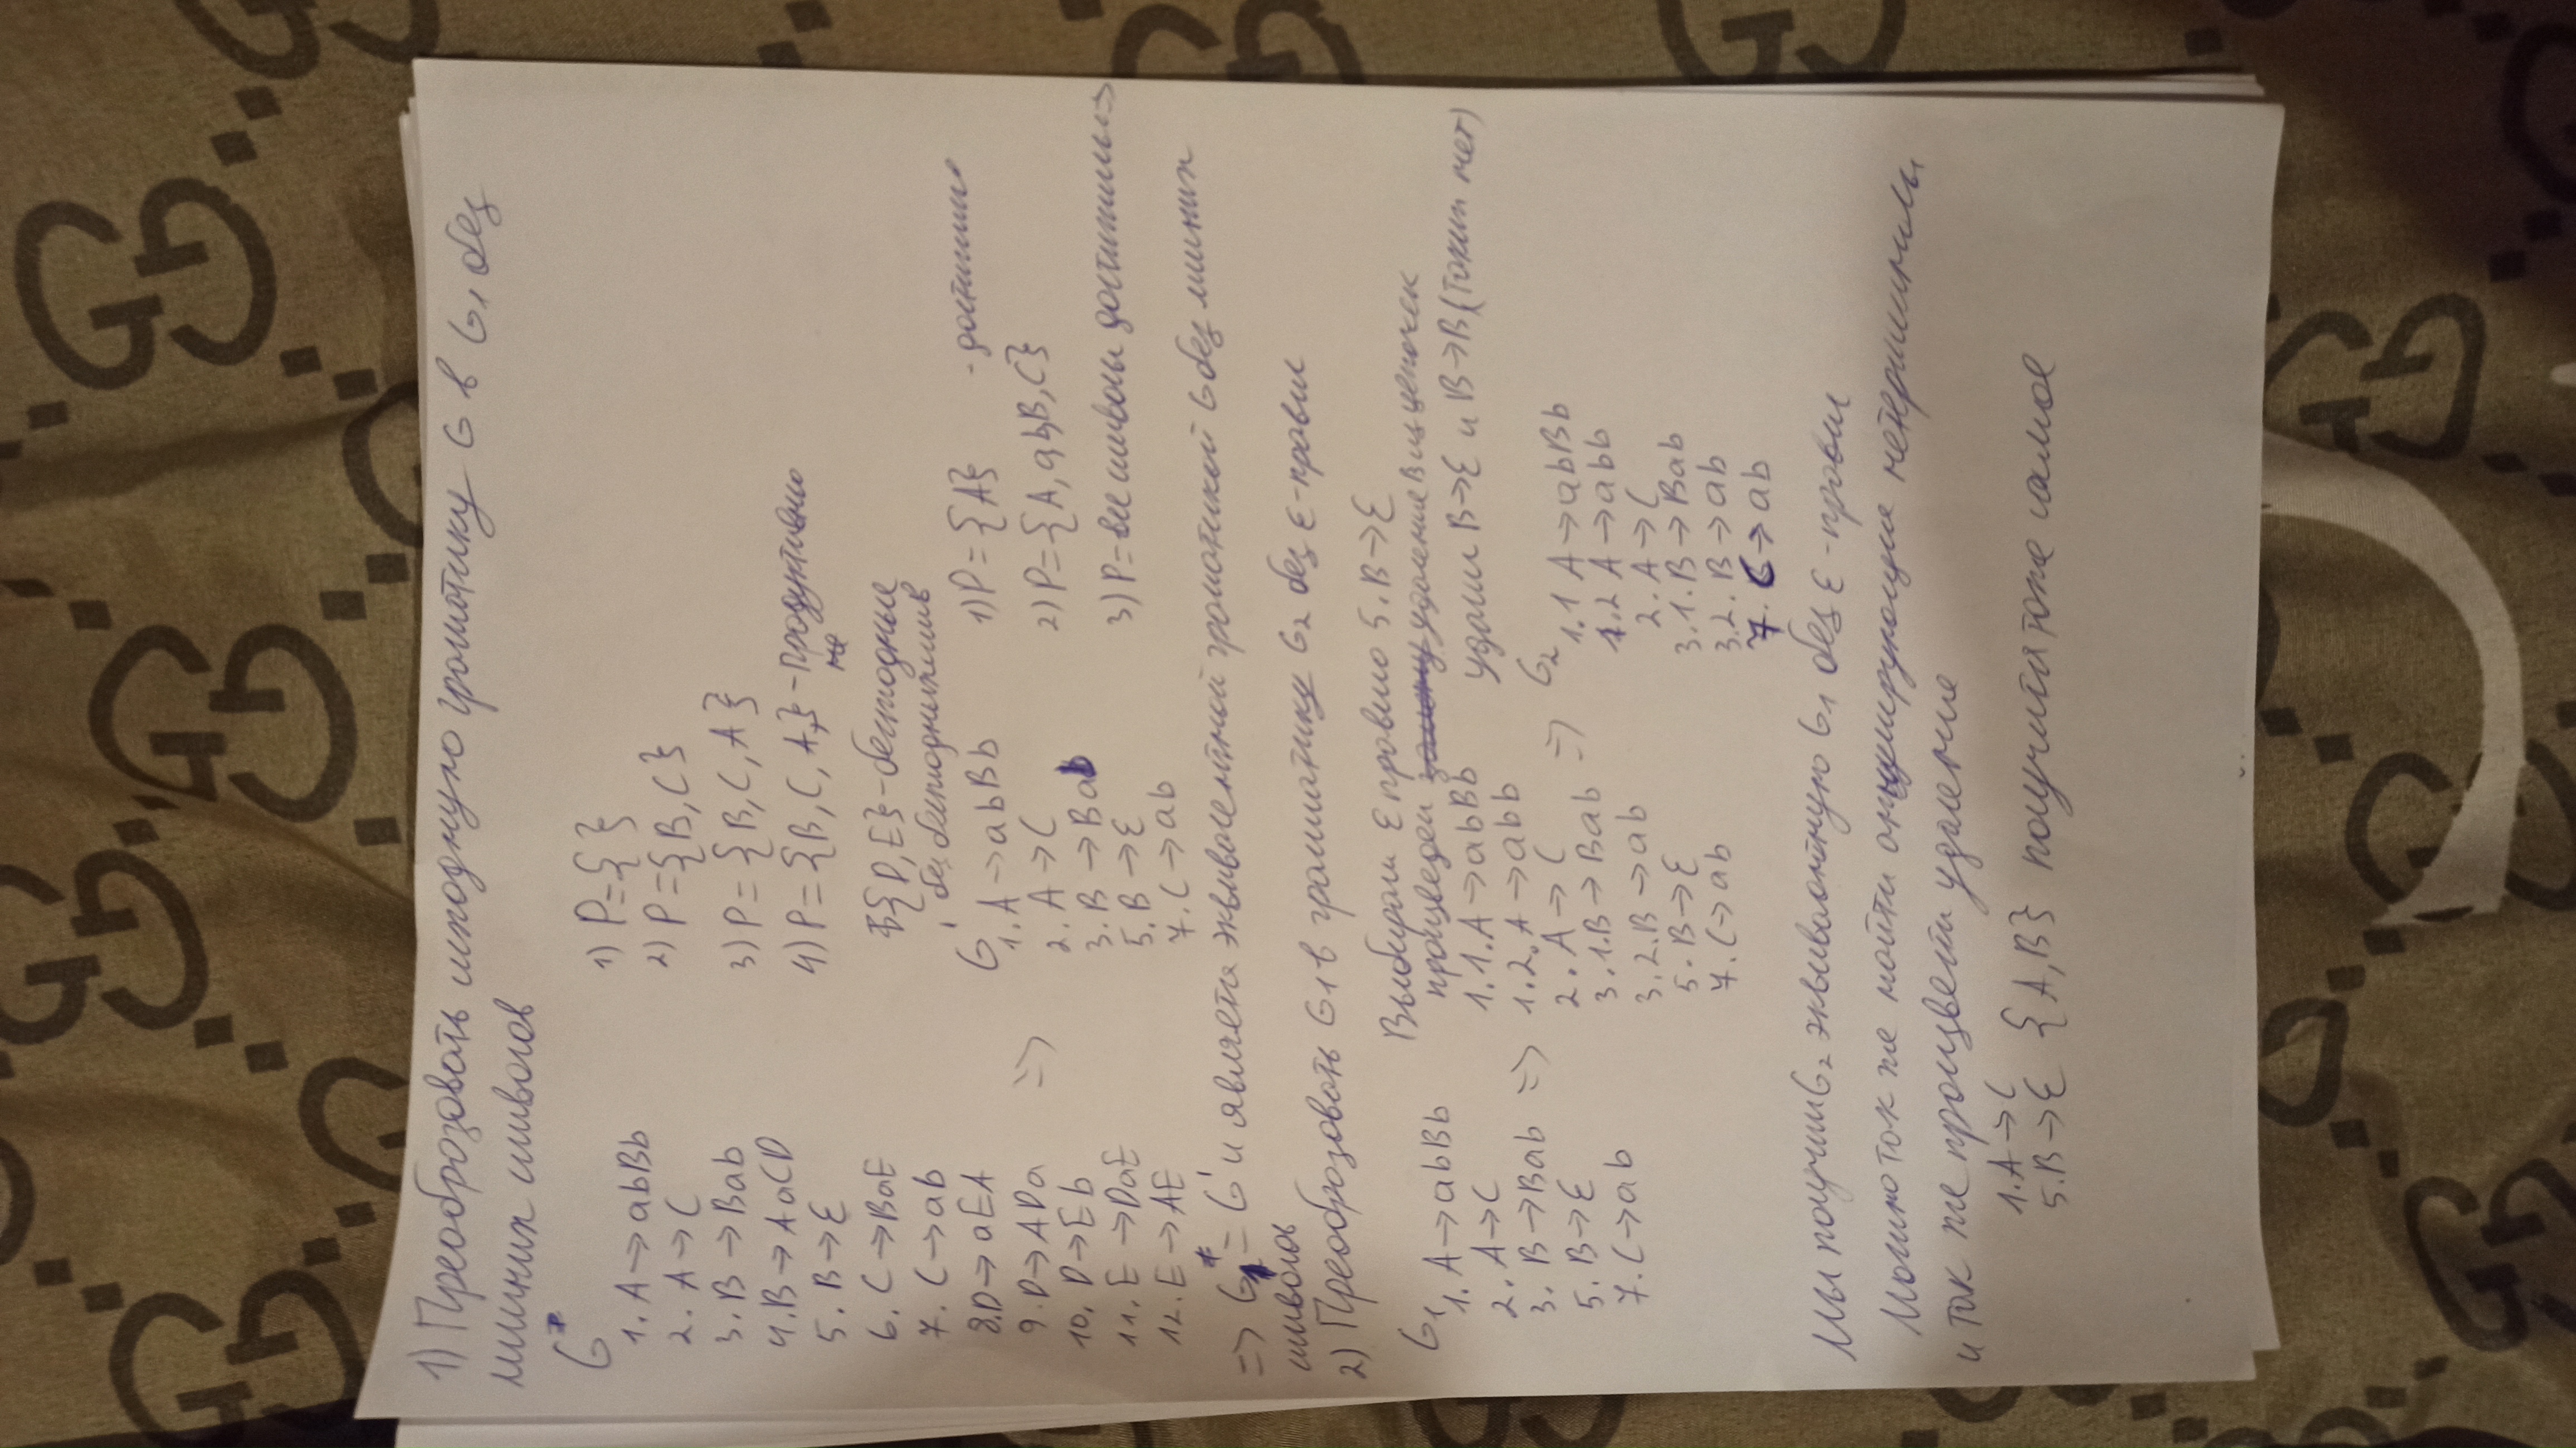 1) Преоброзовать исходную громотику G в G1 без
лишних символов
G
1. A → abBb
2. A → C
3. B → Bab
4. B → AaCD
5. B → ε
6. C → BaE
7. C → ab
8. D → aEA
9. D → ADa
10. D → Eb
11. E → DaE
12. E → AE
1) P = { }
2) P = {B, C}
3) P = {B, C, A}
4) P = {B, C, A} - продуктивно
{D, E} - бесплодные
без бесплодных симв
G'
1. A → abBb
2. A → C
3. B → Bab
5. B → ε
7. C → ab
=>
1) P = {A} - достижимо
2) P = {A, a, b, B, C}
3) P = все символы достижимы =>
=> G1 = G' и является эквивалентной громотикой G без лишних
символов
2) Преоброзовать G1 в грамматику G2 без ε-правил
G1
1. A → abBb
2. A → C
3. B → Bab =>
5. B → ε
7. C → ab
Выбирам ε правило 5. B → ε
произведем удаление B из цепочек
1.1. A → abBb
1.2. A → abb
2. A → C
3.1. B → Bab =>
3.2. B → ab
5. B → ε
7. C → ab
удалим B → ε и B → B (таких нет)
G2
1.1 A → abBb
1.2 A → abb
2. A → C
3.1. B → Bab
3.2. B → ab
7. C → ab
Мы получили G2 эквивалентную G1 без ε-правил
Можно так же найти аннулирующие нетерминалы
и так же произвести удаление
1. A → C
5. B → ε {A, B} получится тоже самое